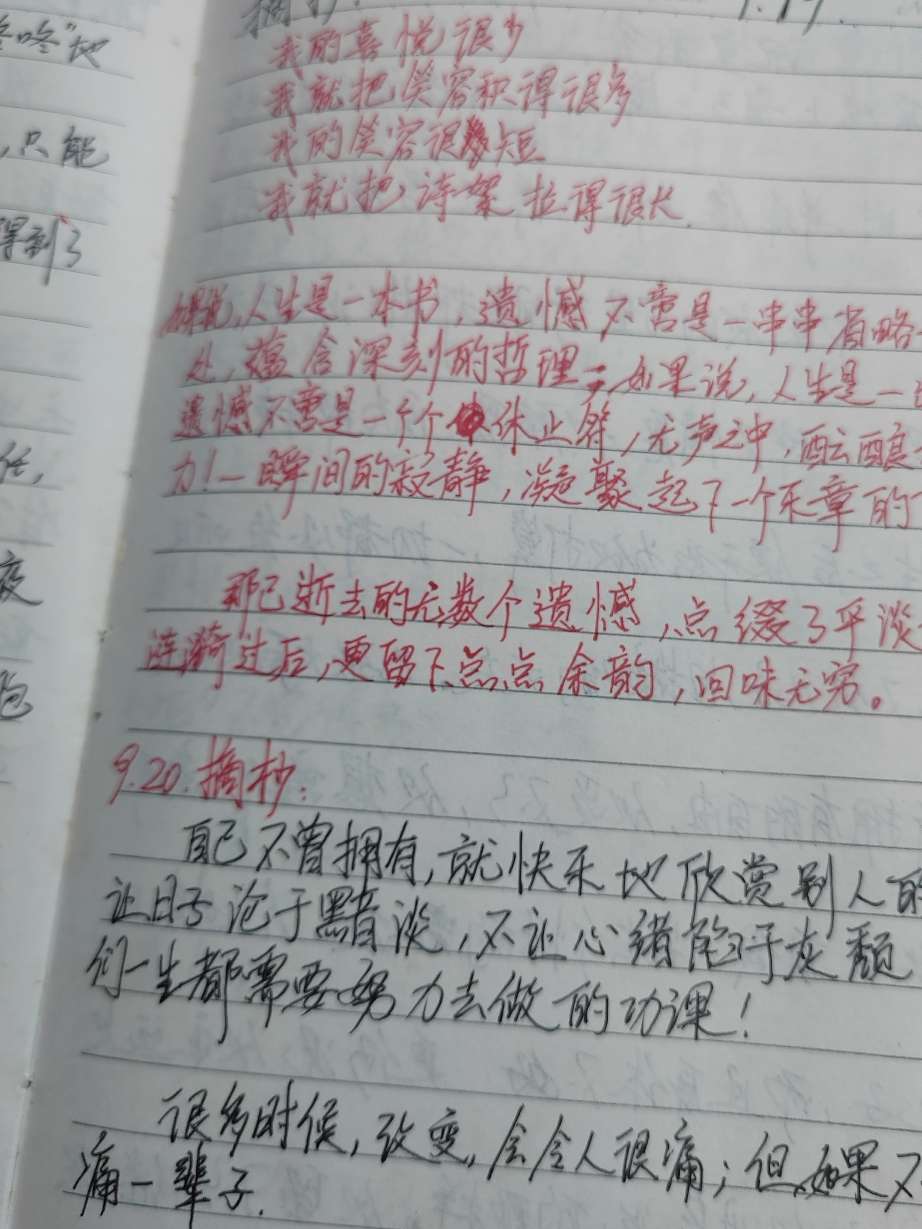 咚咚"地
,只能
得到了
摘抄: 9.19.
我的喜悦很少
我就把笑容积得很多
我的笑容很短
我就把诗絮拉得很长.
如果说,人生是一本书,遗憾不啻是一串串省略
处,蕴含深刻的哲理;如果说,人生是一
遗憾不啻是一个个休止符,无声之中,酝酿
力!一瞬间的寂静,凝聚起下一个乐章的
那已逝去的无数个遗憾,点缀了平淡
涟漪过后,更留下点点余韵,回味无穷。
9.20.摘抄:
自己不曾拥有,就快乐地欣赏别人的
让日子沦于黯淡,不让心绪陷于灰颓
们一生都需要努力去做的功课!
很多时候,改变,会令人很痛;但如果不
痛一辈子.